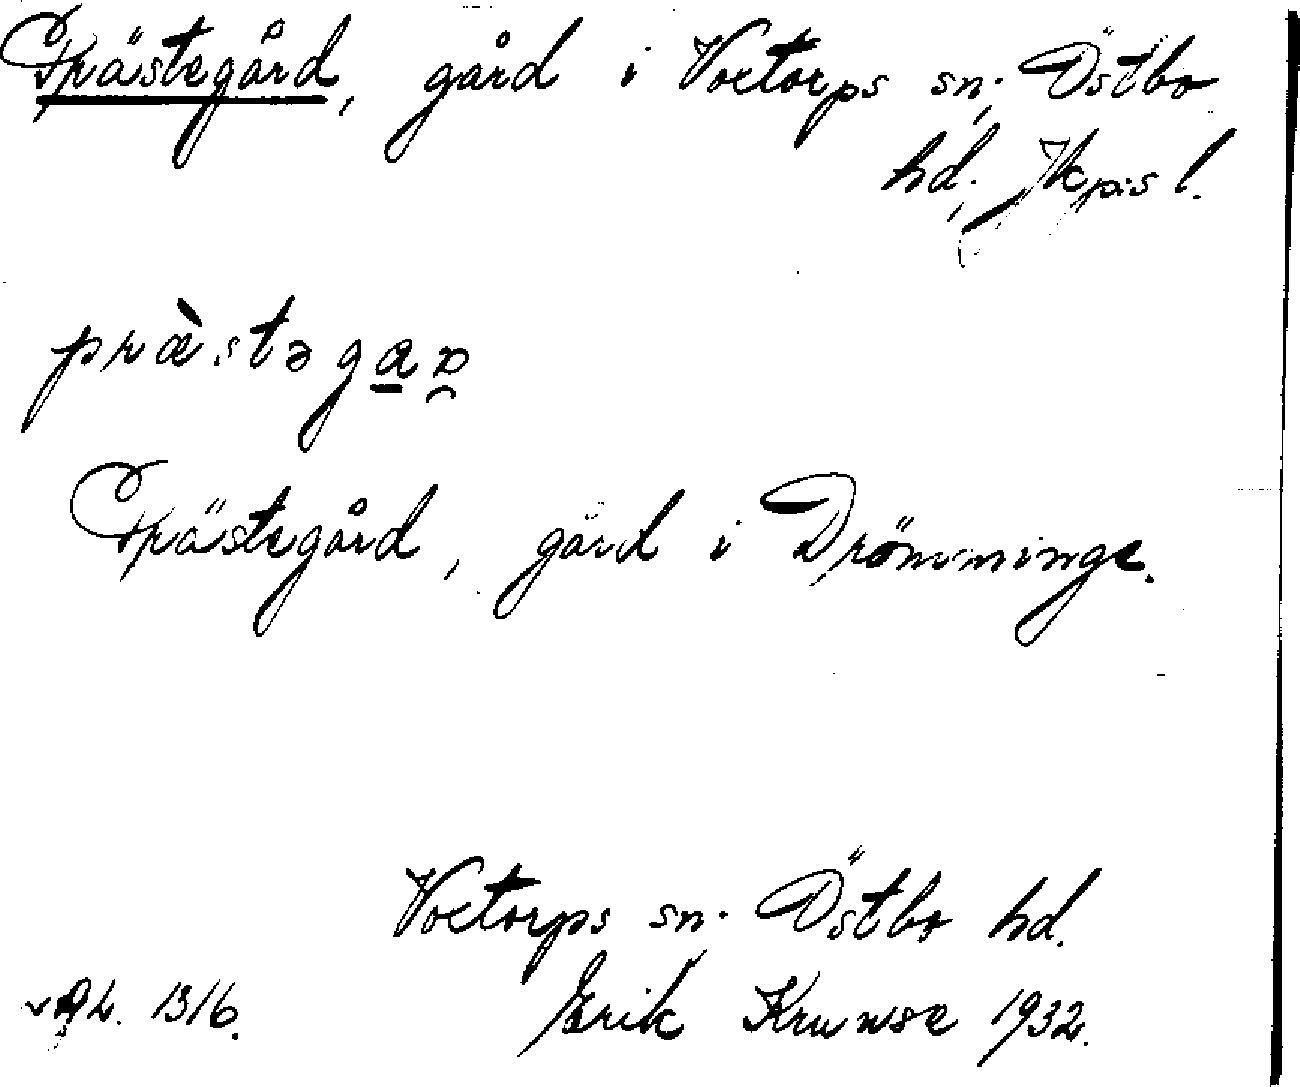 Prästegård, gård i Voxtorps sn; Östbo
hd; Jkps l.
præ̀stəga̲ꭆ̯
Prästegård, gård i Drömminge.
Voxtorps sn. Östbo hd.
Erik Krunse 1932.
1316.